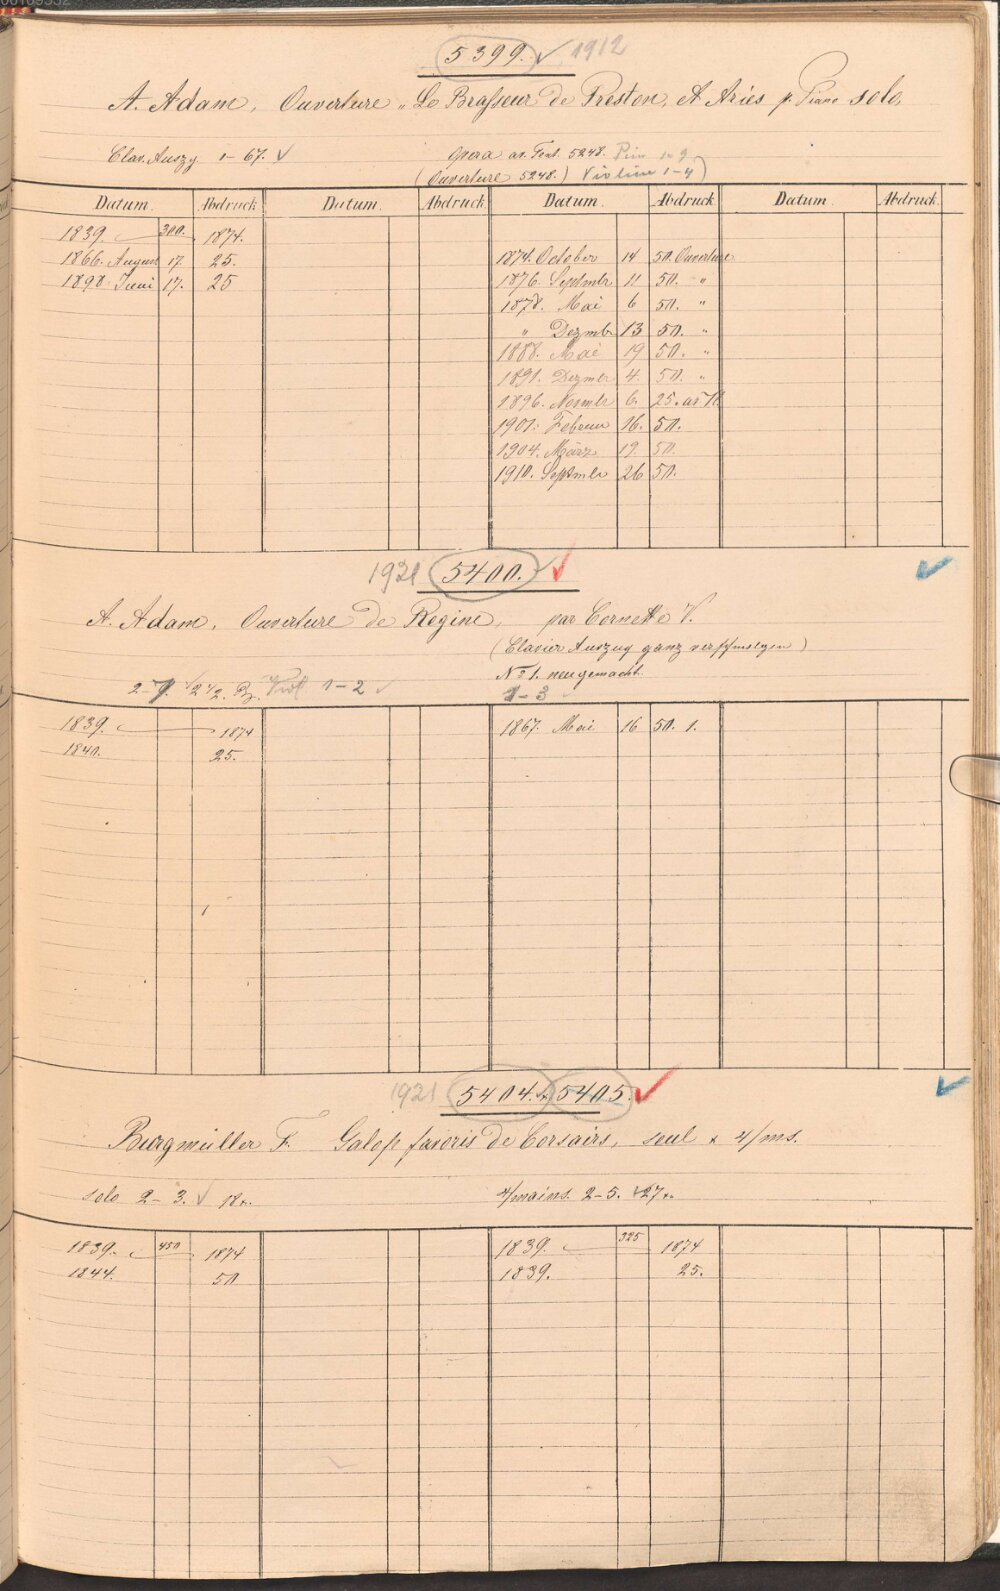 5399. 1912
A. Adam, Ouverture „Le Brasseur de Preston, et Aries p. Piano solo,
Clav. Auszg 1–67. Opera ar. Text. 5248.
(Ouverture 5248.) Violine 1–4)
Datum. Abdruck Datum. Abdruck Datum. Abdruck Datum. Abdruck
1839. 300. 1874.
1866. August 17. 25. 1874. October 14 50. Ouverture
1890. Juni 17. 25 1876. Septmbr 11 50. "
1878. Mai 6 50. "
" Dezmb 13 50. "
1888. Mai 19 50. "
1891. Dezmbr 4. 50. "
1896. Novmbr 6. 25.
1901. Februar 16. 50.
1904. März 19. 50.
1910. Septmbr 26 50.
1921 5400.
A. Adam, Ouverture de Regine, par Cornette V.
(Clavier Auszug ganz verschmolzen)
No 1. neugemacht.
2–7. 2 1/2. Viol 1–2 1–3
1839. 1874 1867. Mai 16 50. 1.
1840. 25.
1921 5404. & 5405.
Burgmüller F. Galop favoris de Corsairs, seul & 4/ms.
solo 2–3. 18x. 4/mains. 2–5. 27x.
1839. 450 1874 1839. 325 1874
1844. 50 1839. 25.